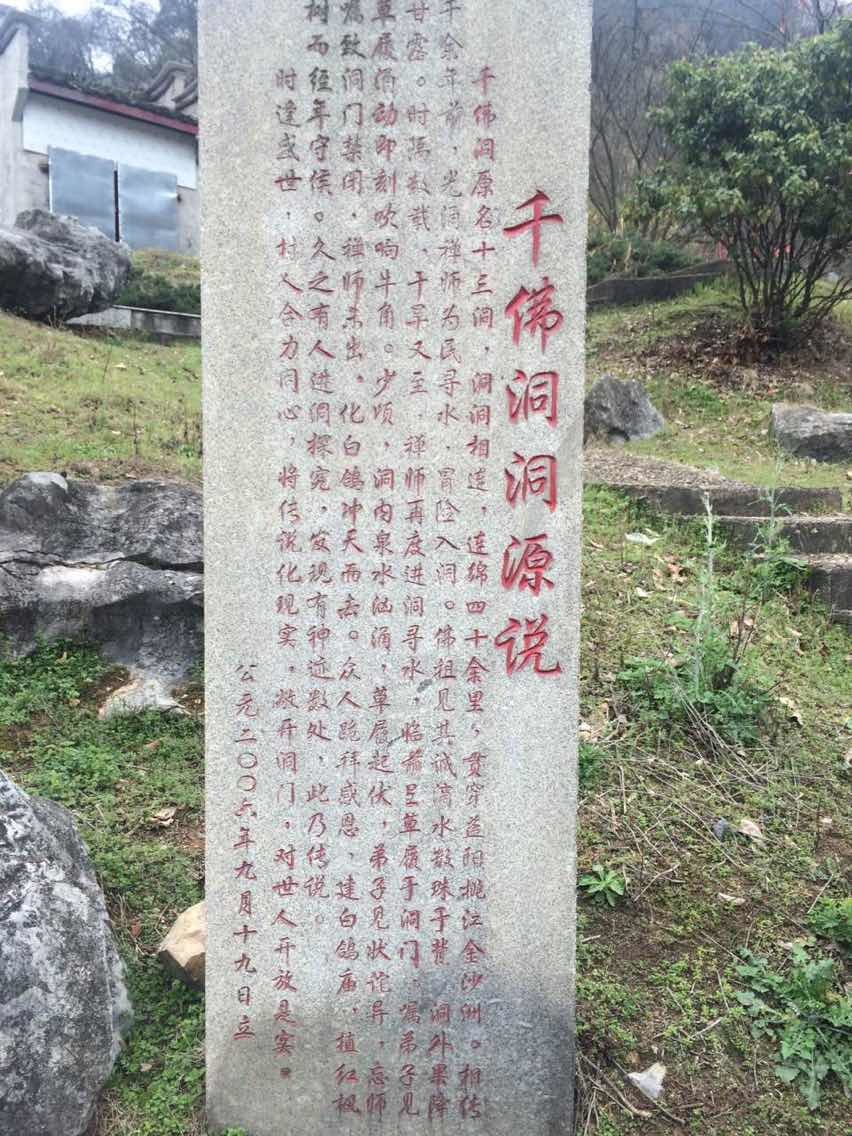 千佛洞洞源说
千佛洞原名十三洞，洞洞相连，连绵四十余里，贯穿益阳桃江金沙洲。相传
千余年前，光洞禅师为民寻水，冒险入洞。佛祖见其诚滴水散珠于赞，洞外果降
甘露。时隔数载，干旱又至，禅师再度进洞寻水，临前呈草履于洞门，嘱弟子见
草履涌动即刻吹响牛角。少顷，洞内泉水汹涌，草履起伏，弟子见状诧异，忘师
嘱致洞门禁闭，禅师未出。化白鸽冲天而去。众人跪拜感恩，建白鸽庙，植红枫
树而经年守侯。久之有人进洞探究，发现有神迹数处，此乃传说。
时逢盛世，村人合力同心，将传说化现实，敞开洞门，对世人开放是实。
公元二〇〇六年九月十九日立